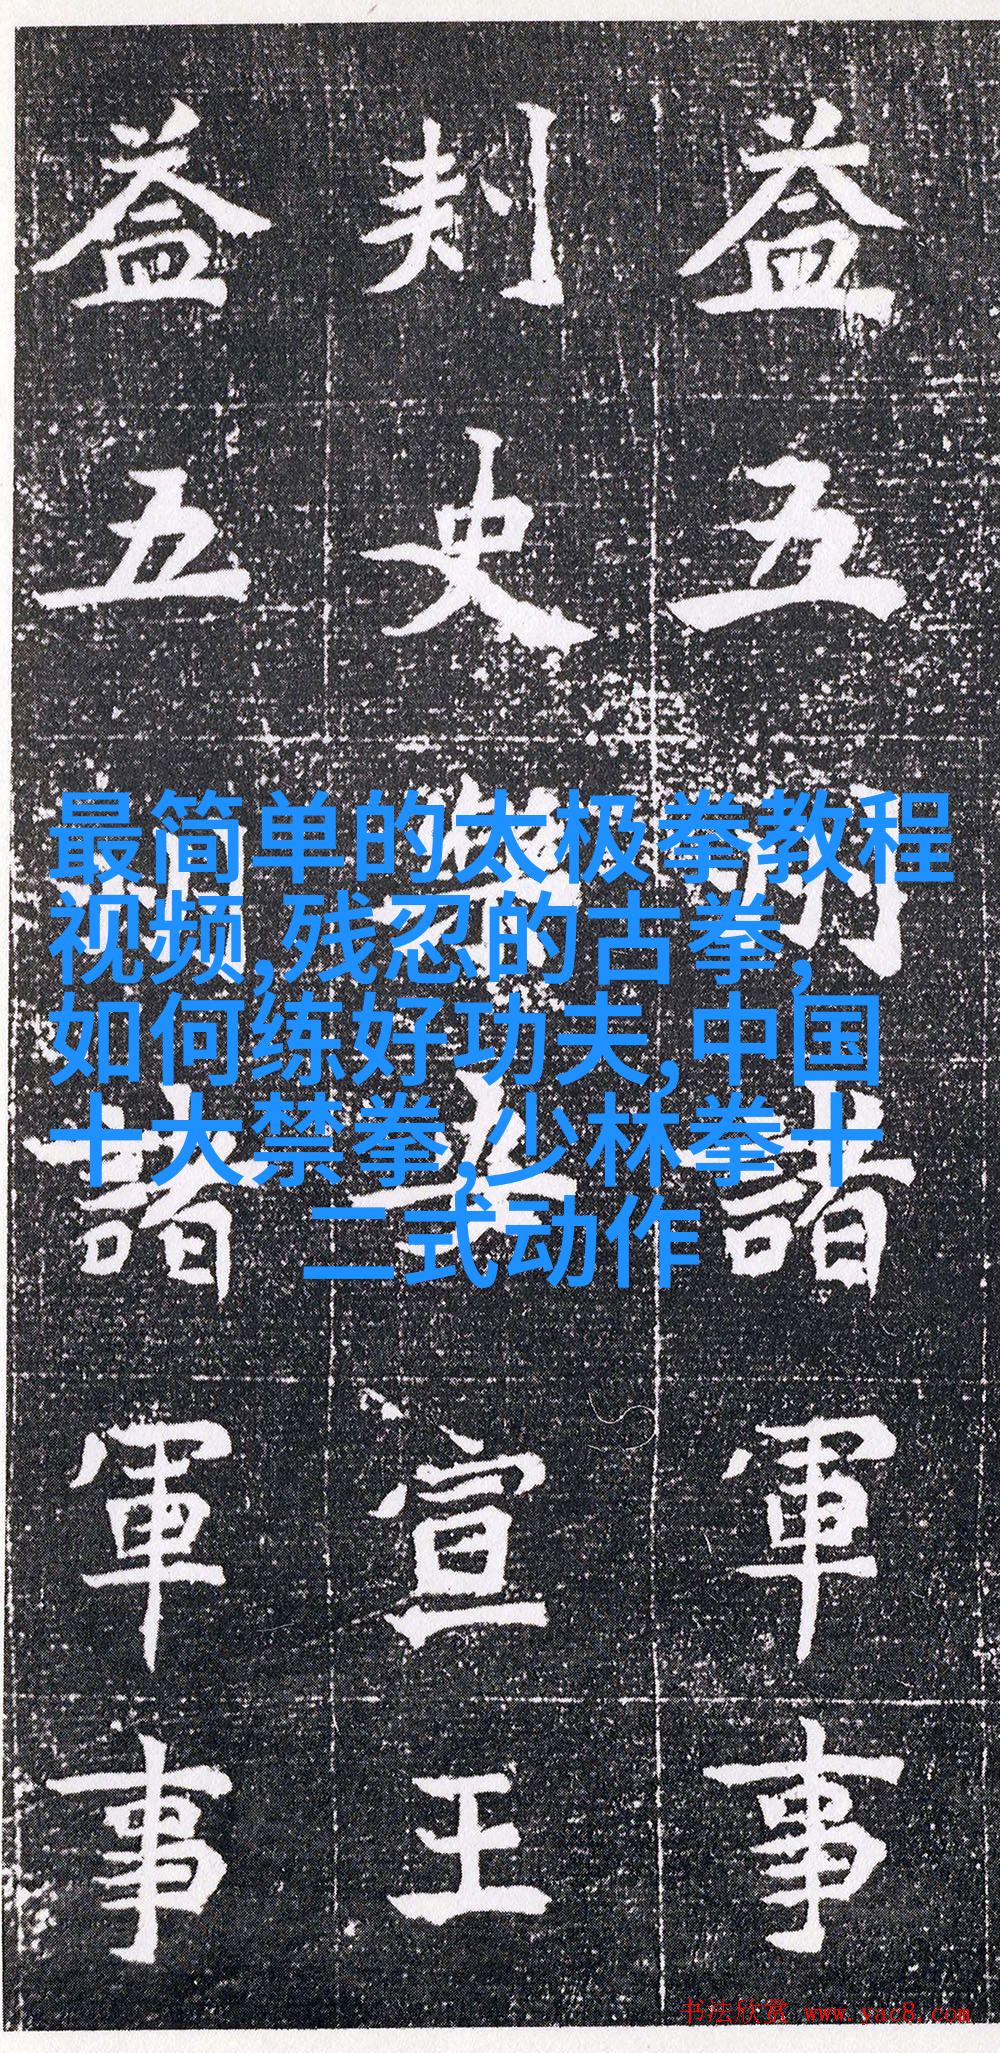 益五州諸軍事
刾史樂安宣王
益五州諸軍事
最简单的太极拳教程
视频,残忍的古拳,
如何练好功夫,中国
十大禁拳,少林拳十
二式动作
书法欣赏 www.yac8.com